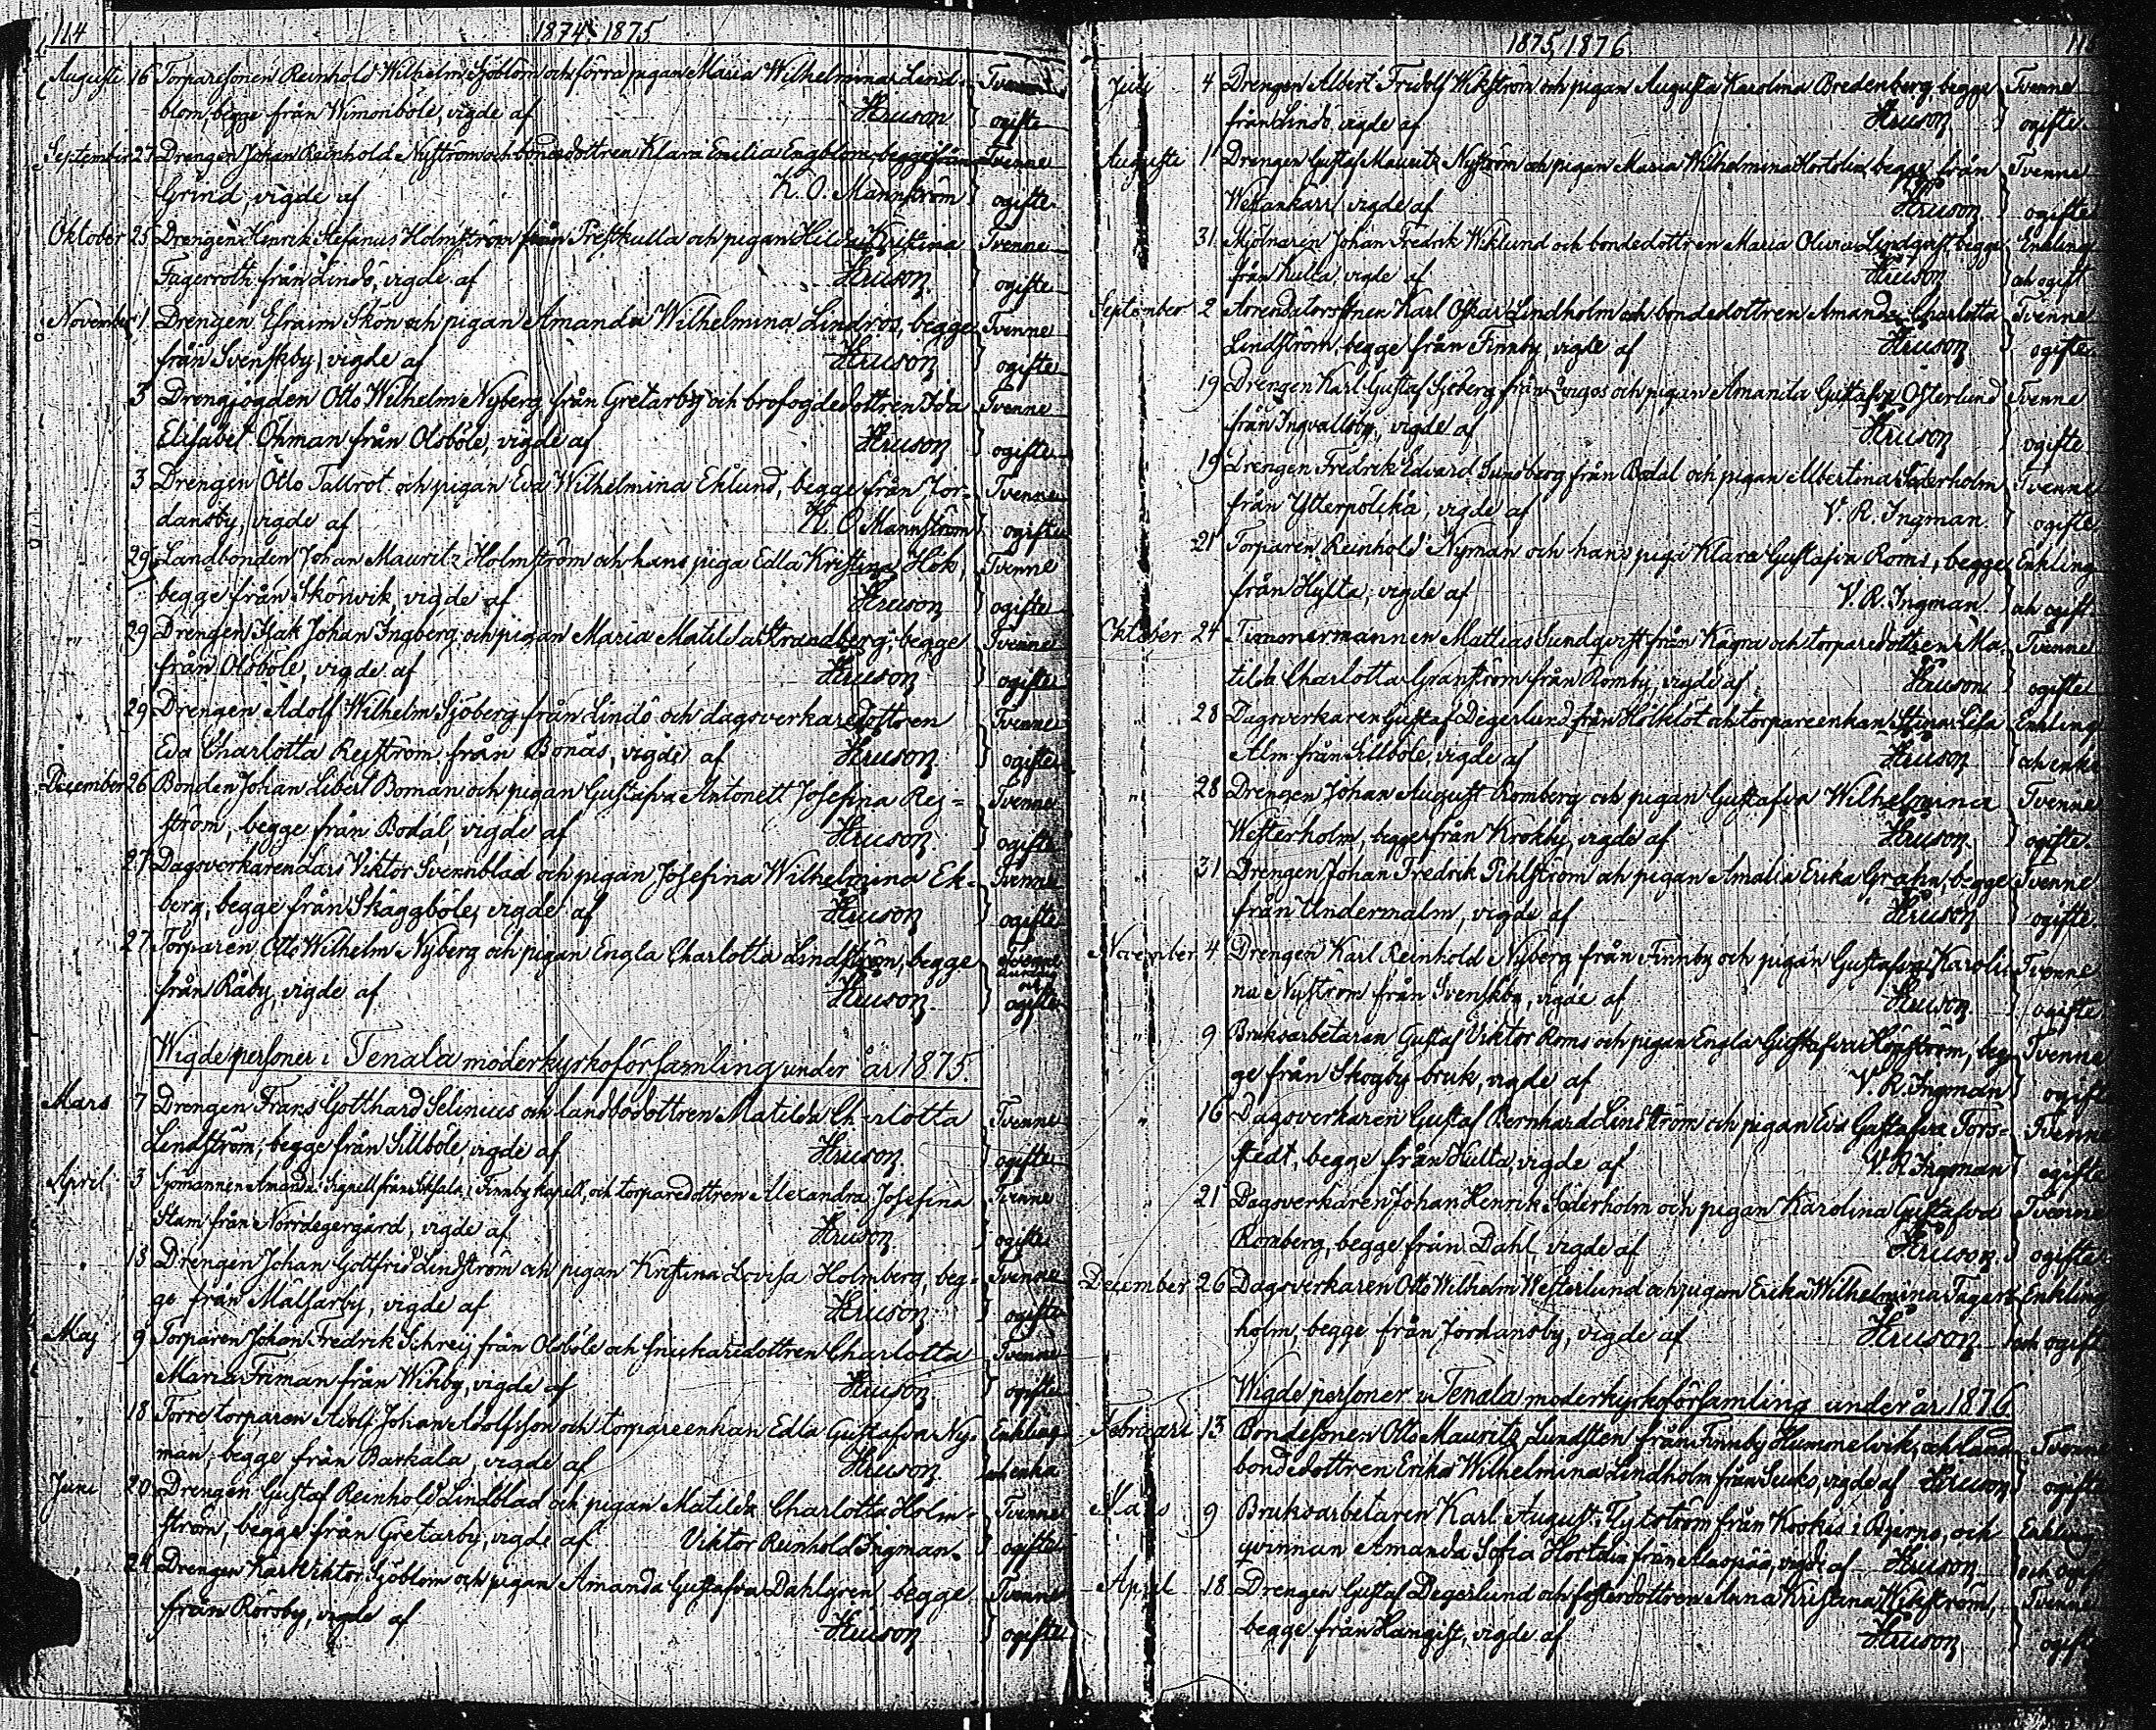 114 1874, 1875
Augusti 16 Torparesonen Reinhold Wilhelm Sjöblom och förra pigan Maria Wilhelmina Lind- Tvenne
blom, begge från Wimonböle, vigde af Hruson ogifte
September 27 Drengen Johan Reinhold Nyström och bondedottren Klara Emilia Engblom, begge från Tvenne
Grind, vigde af K. O. Mannström ogifte
Oktober 25 Drengen Henrik Stefanus Holmström från Prestkulla och pigan Hilda Kristina Tvenne
Fagerroth från Lindö, vigde af Hruson ogifte
November 1 Drengen Efraim Skön och pigan Amanda Wilhelmina Lindros, begge Tvenne
från Svenskby, vigde af Hruson ogifte
3 Drengjogden Otto Wilhelm Nyberg från Gretarby och brofogdedottren Ida Tvenne
Elisabet Öhman från Olsböle, vigde af Hruson ogifte
3 Drengen Otto Tallrot och pigan Eva Wilhelmina Eklund, begge från Jor- Tvenne
dansby, vigde af K. O Mannström ogifte
29 Landbonden Johan Mauritz Holmström och hans piga Edla Kristina Hök, Tvenne
begge från Skönvik, vigde af Hruson ogifte
" 29 Drengen Isak Johan Ingberg och pigan Maria Matilda Strandberg, begge Tvenne
från Olsböle, vigde af Hruson ogifte
29 Drengen Adolf Wilhelm Sjöberg från Lindö och dagsverkaredottren Tvenne
Eva Charlotta Rejström från Bonäs, vigde af Hruson ogifte
December 26 Bonden Johan Libert Boman och pigan Gustafva Antonett Josefina Rej- Tvenne
ström, begge från Bodal, vigde af Hruson ogifte
" 27 Dagsverkaren Lars Viktor Svennblad och pigan Josefina Wilhelmina Ek- Tvenne
berg, begge från Skäggböle, vigde af Hruson ogifte
" 27 Torparen Otto Wilhelm Nyberg och pigan Engla Charlotta Lindström, begge
från Råby, vigde af Hruson ogifte
Wigde personer i Tenala moderkyrkoförsamling under år 1875.
Mars 7 Drengen Frans Gotthard Selinius och landbodottren Matilda Charlotta Tvenne
Lindström, begge från Sillböle, vigde af Hruson ogifte
April 3 Sjömannen Amanda Signell från i Finnby kapell, och torparedottren Alexandra Josefina Tvenne
Stam från Norrdegergård, vigde af Hruson ogifte
" 18 Drengen Johan Gottfrid Lindström och pigan Kristina Lovisa Holmberg, beg- Tvenne
ge från Malsarby, vigde af Hruson ogifte
Maj 9 Torparen Johan Fredrik Schreij från Olsböle och snickaredottren Charlotta Tvenne
Maria Friman från Wikby, vigde af Hruson ogifte
" 18 Förre torparen Adolf Johan Adolfsson och torpareenkan Edla Gustafva Ny- Enkling
man, begge från Barkala, vigde af Hruson och enka
Juni 20 Drengen Gustaf Reinhold Lindblad och pigan Matilda Charlotta Holm- Tvenne
ström, begge från Gretarby, vigde af Viktor Reinhold Ingman. ogifte
" 24 Drengen Karl Viktor Sjöblom och pigan Amanda Gustafva Dahlgren, begge Tvenne
från Rörsby, vigde af Hruson ogifte
1875, 1876
Juli 4 Drengen Albert Fridolf Wikström och pigan Augusta Karolina Bredenberg, begge Tvenne
från Lindö, vigde af Hruson ogifte
Augusti 1 Drengen Gustaf Mauritz Nyström och pigan Maria Wilhelmina Hortolin, begge från Tvenne
Wetankärr, vigde af Hruson ogifte
31 Mjölnaren Johan Fredrik Wiklund och bondedottren Maria Olivia Lindqvist, begge Enkling
från Kulla, vigde af Hruson och ogift
September 2 Arrendatorssonen Karl Oskar Lindholm och bondedottren Amanda Charlotta Tvenne
Lindström, begge från Finnby, vigde af Hruson ogifte
19 Drengen Karl Gustaf Sjöberg från och pigan Amanda Gustafva Österlund Tvenne
från Ingvallsby, vigde af Hruson ogifte
19 Drengen Fredrik Edvard Sundberg från Bodal och pigan Albertina Söderholm Tvenne
från Ytterpölikä, vigde af V. R. Ingman ogifte
21 Torparen Reinhold Nyman och hans piga Klara Gustafva Roms, begge Enkling
från Hylta, vigde af V. R. Ingman och ogift
Oktober 24 Timmermannen Mattias Sundqvist från Kägra och torparedottren Ma- Tvenne
tilda Charlotta Granström från Romby, vigde af Hruson ogifte
28 Dagsverkaren Gustaf Degerlund från och torpareenkan Stina Lisa Enkling
Alm från Sillböle, vigde af Hruson och enka
" 28 Drengen Johan August Romberg och pigan Gustafva Wilhelmina Tvenne
Westerholm, begge från Krokby, vigde af Hruson ogifte.
" 31 Drengen Johan Fredrik Pihlström och pigan Amalia Erika Grahn, begge Tvenne
från Undermalm, vigde af Hruson ogifte.
November 4 Drengen Karl Reinhold Nyberg från Finnby och pigan Gustafva Karoli- Tvenne
na Nyström från Svenskby, vigde af Hruson ogifte
" 9 Bruksarbetaren Gustaf Viktor Roms och pigan Engla Gustafva Högström, beg- Tvenne
ge från Skogby bruk, vigde af V. R. Ingman ogifte
" 16 Dagsverkaren Gustaf Bernhard Lindström och pigan Eva Gustafva Fors- Tvenne
stedt, begge från Kulla, vigde af V. R Ingman ogifte
" 21 Dagsverkaren Johan Henrik Söderholm och pigan Karolina Gustafva Tvenne
Romberg, begge från Dahl, vigde af Hruson ogifte.
December 26 Dagsverkaren Otto Wilhelm Westerlund och pigan Erika Wilhelmina Fager- Enkling
holm, begge från Jordansby, vigde af Hruson. och ogift
Wigde personer i Tenala moderkyrkoförsamling under år 1876
Februari 13 Bondesonen Otto Mauritz Lindsten från Finnby Hummelvik, och land- Tvenne
bondedottren Erika Wilhelmina Lindholm från vigde af Hruson ogifte
Mars 9 Bruksarbetaren Karl August Flytström från Koskis i Bjerno, och Enkling
qvinnan Amanda Sofia Hortolin från vigde af Hruson och ogift
April 18 Drengen Gustaf Degerlund och fosterdottren Anna Kristina Wikström, Tvenne
begge från Hangist, vigde af Hruson ogifte